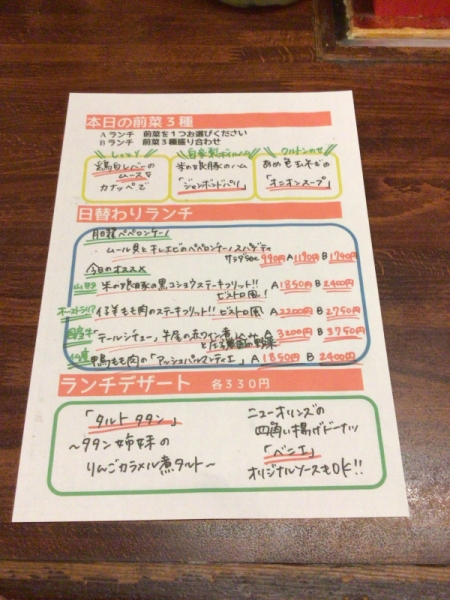 本日の前菜3種
Aランチ 前菜を1つお選びください
Bランチ 前菜3種盛り合わせ
鶏白レバーの
ムースを
カナッペで
自家製
米の娘豚のハム
「ジャンボンドパリ」
クルトンのせ
あめ色玉ネギの
「オニオンスープ」
日替わりランチ
日替ペペロンチーノ
ムール貝と キレエビのペペロンチーノスパゲティ
サラダSetで 990円 A1190円 B 1740円
今日のオススメ
山形 米の娘豚の黒コショウステーキフリット!! A1850円 B 2400円
ビストロ風!
オーストラリア 仔羊もも肉のステーキフリット!! ビストロ風! A2200円 B 2750円
国産牛 「テールシチュー」牛尾の赤ワイン煮 A 3200円 B 3750円
鴨もも肉の「アッシュパルマンティエ」 A 1850円 B 2400円
ランチデザート 各330円
「タルトタタン」
~タタン姉妹の
りんごカラメル煮タルト~
ニューオリンズの
四角い揚げドーナツ
「ベニエ」
オリジナルソースもOK!!